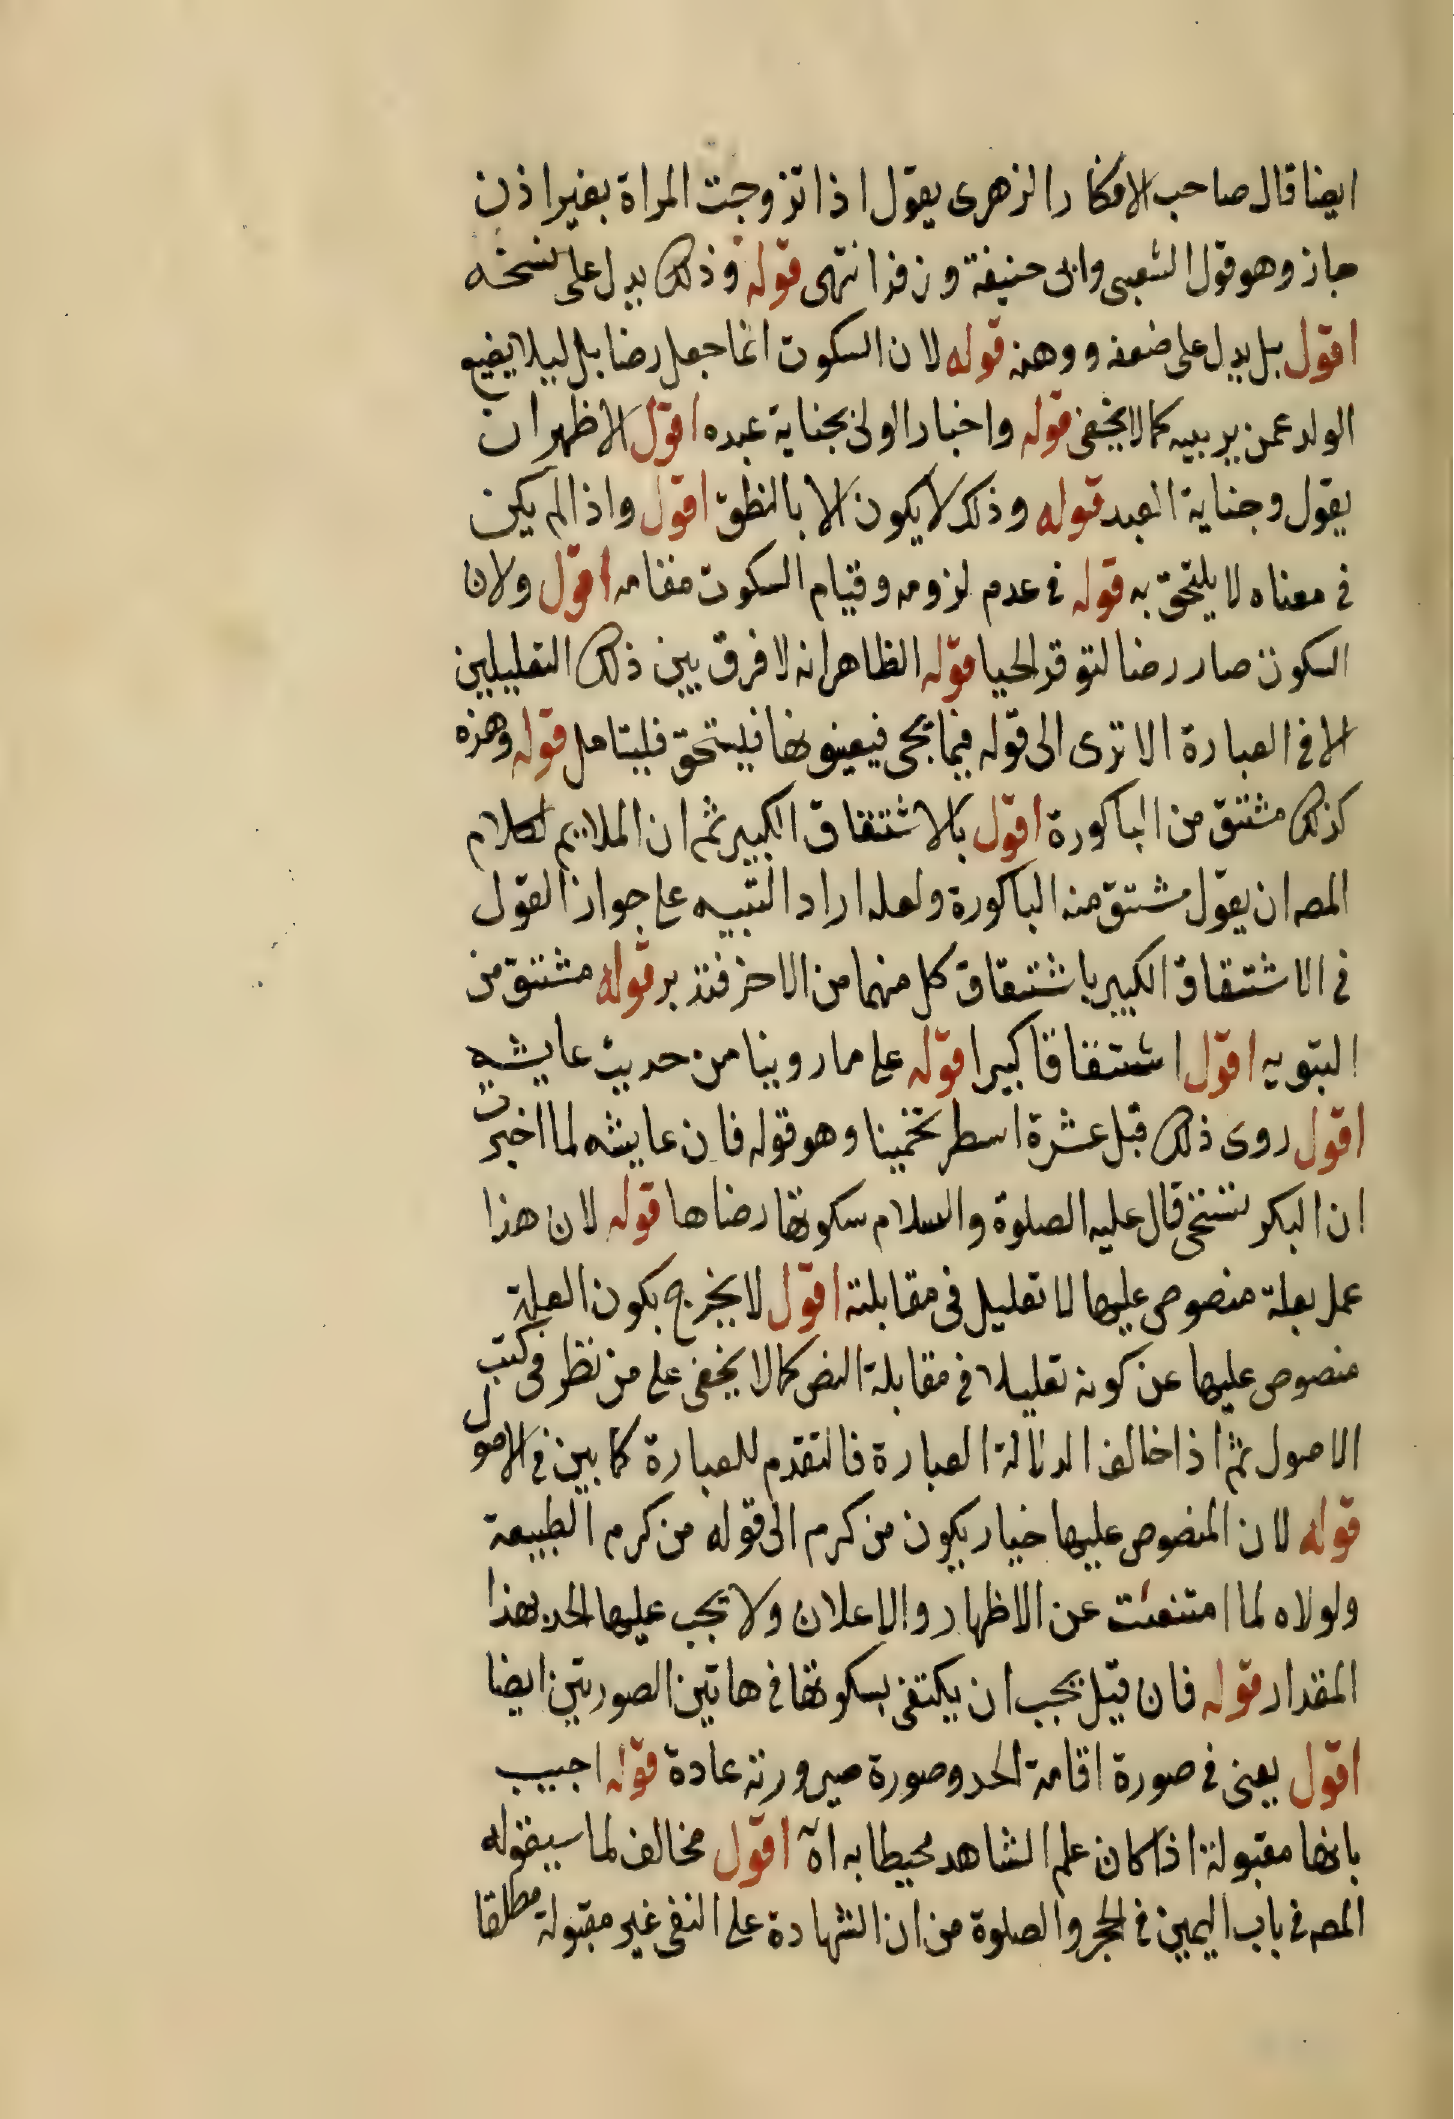 ايضا قال صاحب الافكار الزهرى يقول اذا تزوجت المراة بغير اذن
جاز وهو قول الشعبى وابى حنيفة وزفر انتهى قوله وذلك يدل على نسخه
اقول بل يدل على ضعفه ووهنه قوله لان السكوت انما جعل رضا بل ليلا يضيع
الولد عمن يربيه كما لا يخفى قوله واخبار المولى بجناية عبده اقول الاظهر ان
يقول وجناية العبد قوله وذلك لا يكون الا بالنطق اقول واذا لم يكن
فى معناه لا يلتحق به قوله فى عدم لزومه وقيام السكوت مقامه اقول ولان
السكوت صار رضا لتوقر الحيا قوله الظاهر انه لا فرق بين ذلك التعليلين
الا فى العبارة الا ترى الى قوله فيما يجى فيعينونها فيستحق فليتامل قوله وهذه
كذلك مشتق من الباكورة اقول بالاشتقاق الكبير ثم ان الملايم لكلام
المصه ان يقول مشتق منه الباكورة ولعله اراد التنبيه على جواز القول
فى الاشتقاق الكبير باشتقاق كل منهما من الاخر فتدبر قوله مشتق من
التبويه اقول اشتقاقا كبيرا قوله على ما روينا من حديث عايشه
اقول روى ذلك قبل عشرة اسطر تخمينا وهو قوله فان عايشه لما اخبرت
ان البكر تستحى قال عليه الصلوة والسلام سكوتها رضاها قوله لان هذا
عمل بعلة منصوص عليها لا تعليل فى مقابلته اقول لا يخرج بكون العلة
منصوص عليها عن كونه تعليلا فى مقابلة النص كما لا يخفى على من نظر فى كتب
الاصول ثم اذا خالف الدلالة العبارة فالتقدم للعبارة كما بين فى الاصول
قوله لان المنصوص عليها خيار يكون من كرم الى قوله من كرم الطبيعة
ولولاه لما امتنعت عن الاظهار والاعلان ولا يجب عليها الحد بهذا
المقدار قوله فان قيل يجب ان يكتفى بسكوتها فى هاتين الصورتين ايضا
اقول يعنى فى صورة اقامة الحد وصورة صيرورته عادة قوله اجيب
بانها مقبولة اذا كان علم الشاهد محيطا به اه اقول مخالف لما سيقوله
المصه فى باب اليمين فى الحج والصلوة من ان الشهادة على النفى غير مقبولة مطلقا